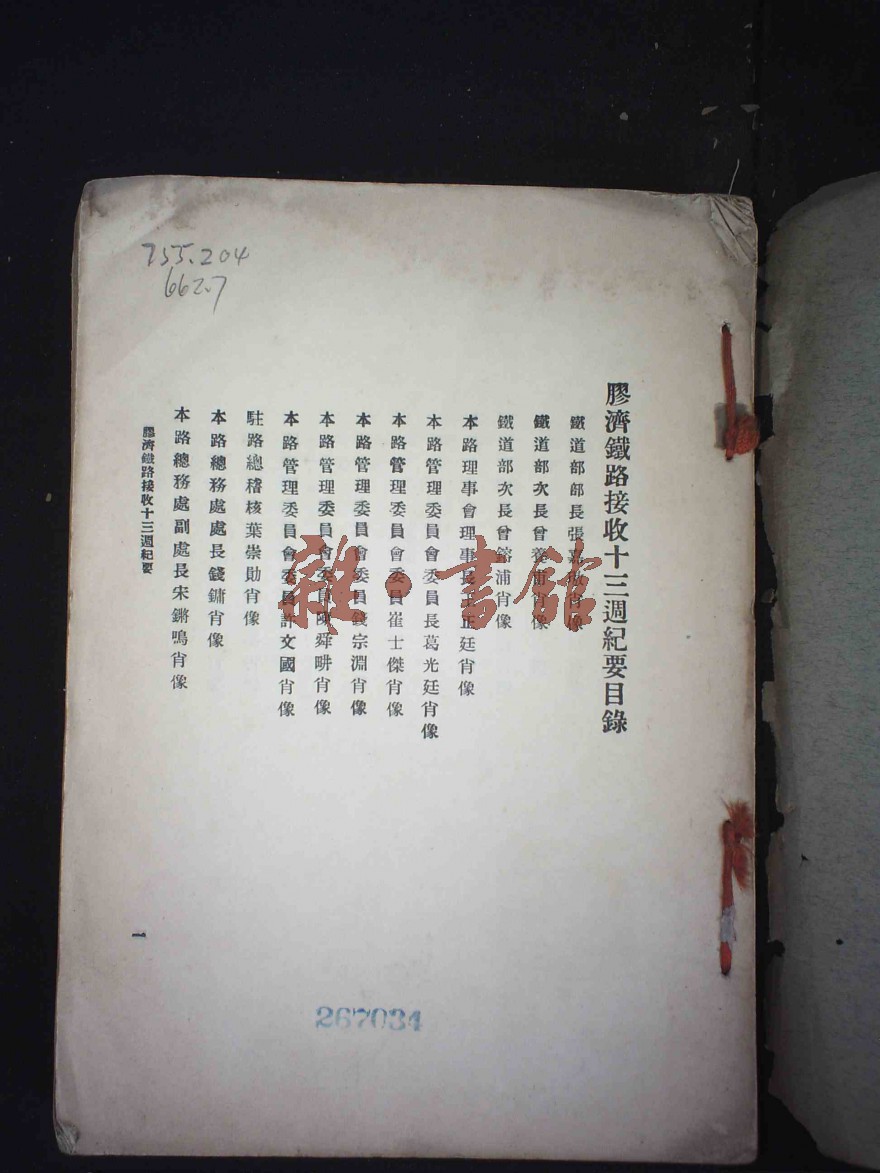 膠濟鐵路接收十三週紀要目錄
鐵道部部長張嘉璈肖像
鐵道部次長曾養甫肖像
鐵道部次長曾鎔浦肖像
本路理事會理事長王正廷肖像
本路管理委員會委員長葛光廷肖像
本路管理委員會委員崔士傑肖像
本路管理委員會委員錢宗淵肖像
本路管理委員會委員陳舜畊肖像
本路管理委員會委員許文國肖像
駐路總稽核葉崇勛肖像
本路總務處處長錢鏽肖像
本路總務處副處長宋鏘鳴肖像
膠濟鐵路接收十三週紀要
一
755.204
662.7
267034
雜·書館